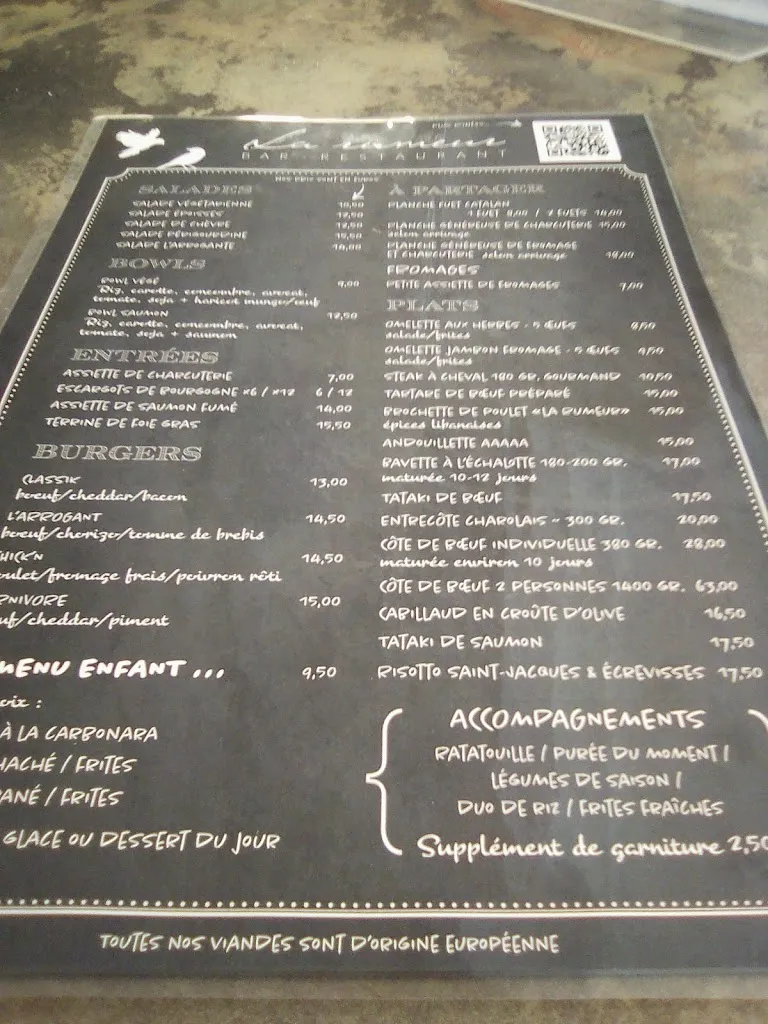 La rumeur
BAR - RESTAURANT
NOS PRIX SONT EN EUROS
SALADES
SALADE VÉGÉTARIENNE 10,50
SALADE ÉPOISSES 12,50
SALADE DE CHÈVRE 12,50
SALADE PÉRIGOURDINE 15,50
SALADE L'ARROGANTE 14,00
BOWLS
BOWL VÉGÉ 9,00
Riz, carotte, concombre, avocat,
tomate, soja + haricot mungo/oeuf
BOWL SAUMON 12,50
Riz, carotte, concombre, avocat,
tomate, soja + saumon
ENTRÉES
ASSIETTE DE CHARCUTERIE 7,00
ESCARGOTS DE BOURGOGNE X6 / X12 6 / 12
ASSIETTE DE SAUMON FUMÉ 14,00
TERRINE DE FOIE GRAS 15,50
BURGERS
CLASSIK 13,00
boeuf/cheddar/bacon
L'ARROGANT 14,50
boeuf/chorizo/tomme de brebis
HICK'N 14,50
oulet/fromage frais/poivron rôti
RNIVORE 15,00
uf/cheddar/piment
MENU ENFANT ... 9,50
oix :
À LA CARBONARA
HACHÉ / FRITES
PANÉ / FRITES
GLACE OU DESSERT DU JOUR
À PARTAGER
PLANCHE FUET CATALAN
1 FUET 8,00 / 2 FUETS 14,00
PLANCHE GÉNÉREUSE DE CHARCUTERIE 15,00
selon arrivage
PLANCHE GÉNÉREUSE DE FROMAGE
ET CHARCUTERIE selon arrivage 18,00
FROMAGES
PETITE ASSIETTE DE FROMAGES 7,00
PLATS
OMELETTE AUX HERBES - 5 ŒUFS 8,50
salade/frites
OMELETTE JAMBON FROMAGE - 5 ŒUFS 9,50
salade/frites
STEAK À CHEVAL 180 GR. GOURMAND 10,50
TARTARE DE BŒUF PRÉPARÉ 15,00
BROCHETTE DE POULET «LA RUMEUR» 15,00
épices libanaises
ANDOUILLETTE AAAAA 15,00
BAVETTE À L'ÉCHALOTTE 180-200 GR. 17,00
maturée 10-12 jours
TATAKI DE BŒUF 17,50
ENTRECÔTE CHAROLAIS ~ 300 GR. 20,00
CÔTE DE BŒUF INDIVIDUELLE 380 GR. 28,00
maturée environ 10 jours
CÔTE DE BŒUF 2 PERSONNES 1400 GR. 63,00
CABILLAUD EN CROÛTE D'OLIVE 16,50
TATAKI DE SAUMON 17,50
RISOTTO SAINT-JACQUES & ÉCREVISSES 17,50
ACCOMPAGNEMENTS
RATATOUILLE / PURÉE DU MOMENT /
LÉGUMES DE SAISON /
DUO DE RIZ / FRITES FRAÎCHES
Supplément de garniture 2,50
TOUTES NOS VIANDES SONT D'ORIGINE EUROPÉENNE